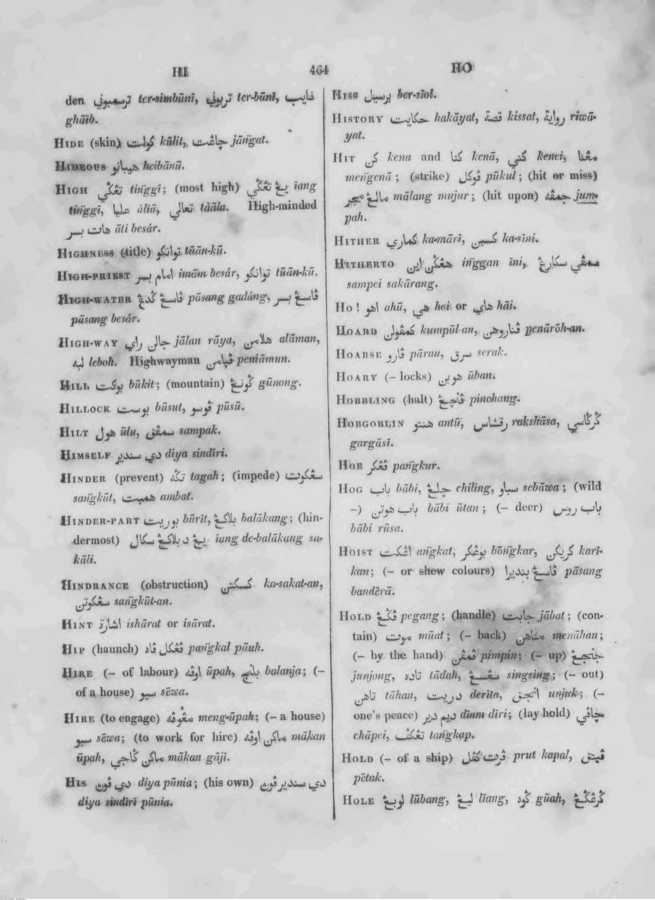 HI 464 HO
den ترسمبوني ter-simbūni, تربوني ter-būni, غايب
ghāib.
HIDE (skin) كولت kūlit, جاڠت jāñgat.
HIDEOUS هيبانو heibānū.
HIGH تڠݢي tiñggi; (most high) يڠ تڠݢي iang
tiñggi, عليا āliā, تعالي tāāla. High-minded
هات بسر āti besár.
HIGHNESS (title) توانكو tūān-kū.
HIGH-PRIEST امام بسر imām besár, توانكو tūān-kū.
HIGH-WATER ڤاسڠ ݢدڠ pāsang gadáng, ڤاسڠ بسر
pāsang besár.
HIGH-WAY جالن راي jālan rāya, هلامن alāman,
لبه leboh. Highwayman ڤيامن peniāmun.
HILL بوكت būkit; (mountain) ݢونڠ gūnong.
HILLOCK بوست būsut, ڤوسو pūsū.
HILT هول ūlu, سمڤق sampak.
HIMSELF دي سندير diya sindiri.
HINDER (prevent) تݢه tagah; (impede) سڠكوت
sañgkūt, همبت ambat.
HINDER-PART بوريت būrit, بلاكڠ balākang; (hin-
dermost) يڠ د بلاكڠ سكال iang de-balākang sa-
kāli.
HINDRANCE (obstruction) كسكتن ka-sakat-an,
سڠكوتن sañgkūt-an.
HINT اشارة ishārat or isārat.
HIP (haunch) ڤڠكل ڤاه pañgkal pāuh.
HIRE (– of labour) اوڤه ūpah, بلنج balanja; (–
of a house) سيو sēwa.
HIRE (to engage) مڠوڤه meng-ūpah; (– a house)
سيو sēwa; (to work for hire) ماكن اوڤه mākan
ūpah, ماكن ݢاجي mākan gāji.
HIS دي ڤون diya pūnia; (his own) دي سندير ڤون
diya sindiri pūnia.
HISS برسيل ber-siol.
HISTORY حكايت hakāyat, قصة kissat, رواية riwā-
yat.
HIT كن kena and كنا kenā, كني kenei, مڠنا
meñgenā; (strike) ڤوكل pūkul; (hit or miss)
مالڠ مجر mālang mujur; (hit upon) جمڤه jum-
pah.
HITHER كماري ka-māri, كسين ka-sini.
HITHERTO هڠݢن اين iñggan ini, سمڤي سكارڠ
sampei sakārang.
HO! اهو ahū, هي hei or هاي hāi.
HOARD كمڤولن kumpūl-an, ڤناروهن penārōh-an.
HOARSE ڤارو pārau, سرق serak.
HOARY (– locks) هوبن ūban.
HOBBLING (halt) ڤنچڠ pinchang.
HOBGOBLIN هنتو antū, رقشاس rakshāsa, ݢرݢاسي
gargāsi.
HOE ڤڠكر pañgkur.
HOG باب bābi, چلڠ chiling, سباو sebāwa; (wild
–) باب هوتن bābi ūtan; (– deer) باب روس
bābi rūsa.
HOIST اڠكت añgkat, بوڠكر bōñgkar, كريكن kari-
kan; (– or shew colours) ڤاسڠ بنديرا pāsang
bandērā.
HOLD ڤݢڠ pegang; (handle) جابت jābat; (con-
tain) موت mūat; (– back) مناهن menāhan;
(– by the hand) ڤمڤن pimpin; (– up) جنجڠ
junjong, تاده tādah, سڠسڠ singsing; (– out)
تاهن tāhan, دريت derita, انجق unjuk; (–
one's peace) ديم دير diam diri; (lay hold) چاڤي
chāpei, تڠكڤ tangkap.
HOLD (– of a ship) ڤرت كڤل prut kapal, ڤيتق
pētak.
HOLE لوبڠ lūbang, ليڠ līang, ݢوه gūah, ݢرڠݢڠ